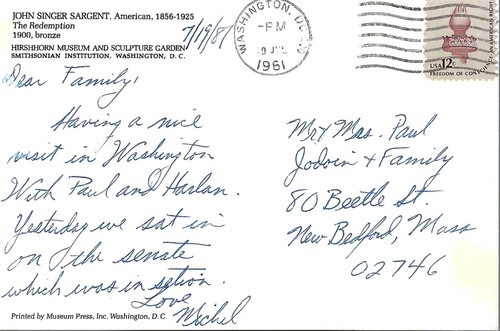 JOHN SINGER SARGENT, American, 1856-1925
The Redemption
1900, bronze
HIRSHHORN MUSEUM AND SCULPTURE GARDEN
SMITHSONIAN INSTITUTION, WASHINGTON, D. C.
7/19/81
WASHINGTON, DC
-PM
9 JUL
1981
USA 12c
FREEDOM OF CONSCIENCE AN AMERICAN RIGHT
Dear Family,
Having a nice
visit in Washington
With Paul and Harlan.
Yesterday we sat in
on the senate
which was in sztion.
Love
Michel
Mr + Mrs. Paul
Jodoin + Family
80 Beetle St.
New Bedford, Mass
02746
Printed by Museum Press, Inc. Washington, D. C.